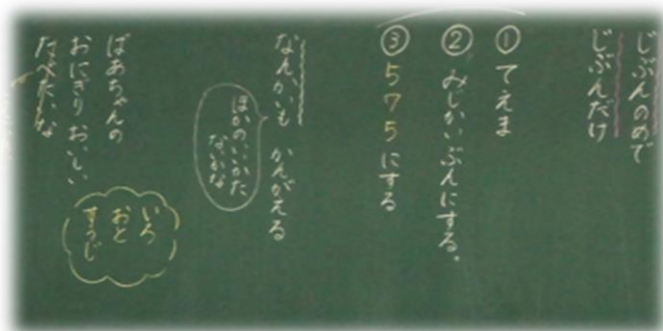 じぶんのめで
じぶんだけ
① てえま
② みじかいぶんにする。
③ 575にする
なんかいも かんがえる
ほかのいいかた
ないかな
ばあちゃんの
おにぎり おいしい
たべたいな
いろ
おと
すうじ